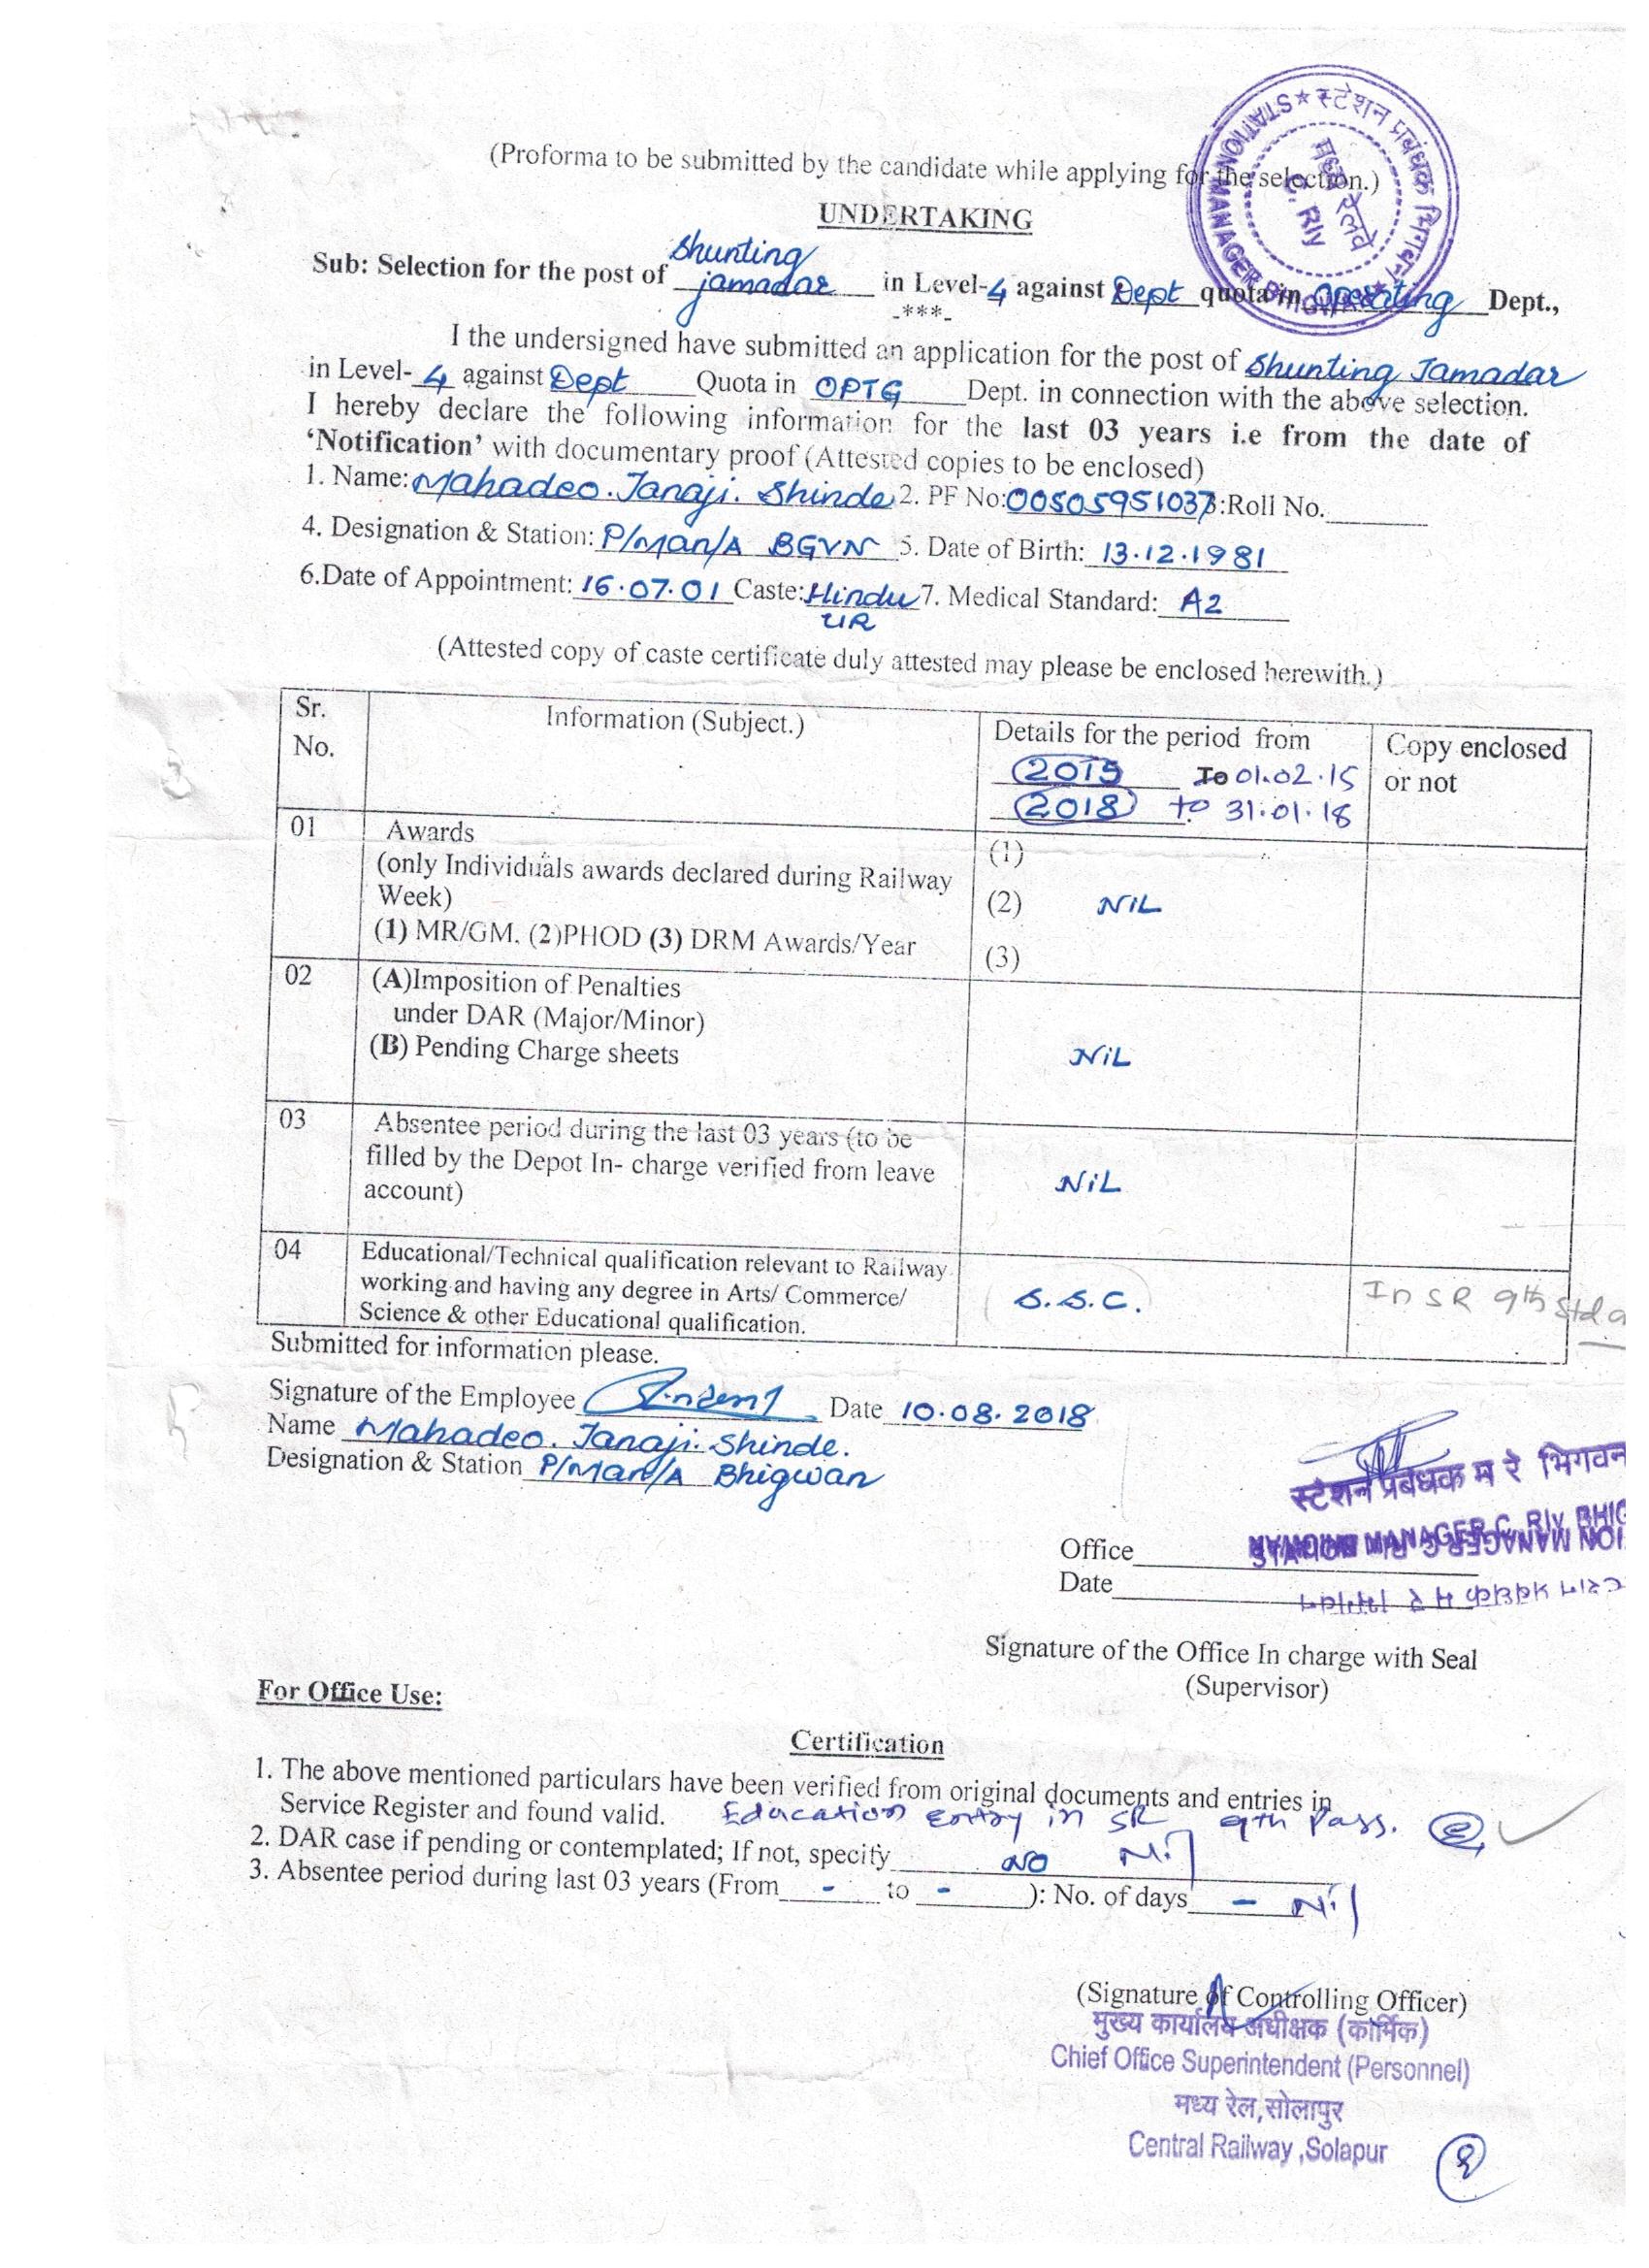 (Proforma to be submitted by the candidate while applying for the selection.)
स्टेशन प्रबंधक भिगवन
STATION MANAGER BHIGWAN
मध्य रेलवे
C. Rly
UNDERTAKING
Sub: Selection for the post of Shunting jamadar in Level-4 against Dept quota in Operating Dept.,
-***-
I the undersigned have submitted an application for the post of Shunting Jamadar
in Level- 4 against Dept Quota in OPTG Dept. in connection with the above selection.
I hereby declare the following information for the last 03 years i.e from the date of
‘Notification’ with documentary proof (Attested copies to be enclosed)
1. Name: Mahadeo. Tanaji. Shinde 2. PF No: 00505951037 3:Roll No.
4. Designation & Station: P/Man/A BGVN 5. Date of Birth: 13.12.1981
6.Date of Appointment: 16.07.01 Caste: Hindu 7. Medical Standard: A2
UR
(Attested copy of caste certificate duly attested may please be enclosed herewith.)
Sr. No. Information (Subject.) Details for the period from Copy enclosed or not
2015 To 01.02.15
2018 to 31.01.18
01 Awards (1)
(only Individuals awards declared during Railway
Week) (2) NiL
(1) MR/GM. (2)PHOD (3) DRM Awards/Year (3)
02 (A)Imposition of Penalties
under DAR (Major/Minor)
(B) Pending Charge sheets NiL
03 Absentee period during the last 03 years (to be
filled by the Depot In- charge verified from leave NiL
account)
04 Educational/Technical qualification relevant to Railway
working and having any degree in Arts/ Commerce/ S.S.C. In SR 9th Std
Science & other Educational qualification.
Submitted for information please.
Signature of the Employee Date 10.08.2018
Name Mahadeo. Tanaji. Shinde.
Designation & Station P/Man/A Bhigwan
स्टेशन प्रबंधक म रे भिगवन
MANAGER C. Rly BHIG
Office
Date
Signature of the Office In charge with Seal
(Supervisor)
For Office Use:
Certification
1. The above mentioned particulars have been verified from original documents and entries in
Service Register and found valid. Education entry in SR 9th Pass.
2. DAR case if pending or contemplated; If not, specify NO Nil
3. Absentee period during last 03 years (From - to - ): No. of days - Nil
(Signature of Controlling Officer)
मुख्य कार्यालय अधीक्षक (कार्मिक)
Chief Office Superintendent (Personnel)
मध्य रेल,सोलापुर
Central Railway ,Solapur